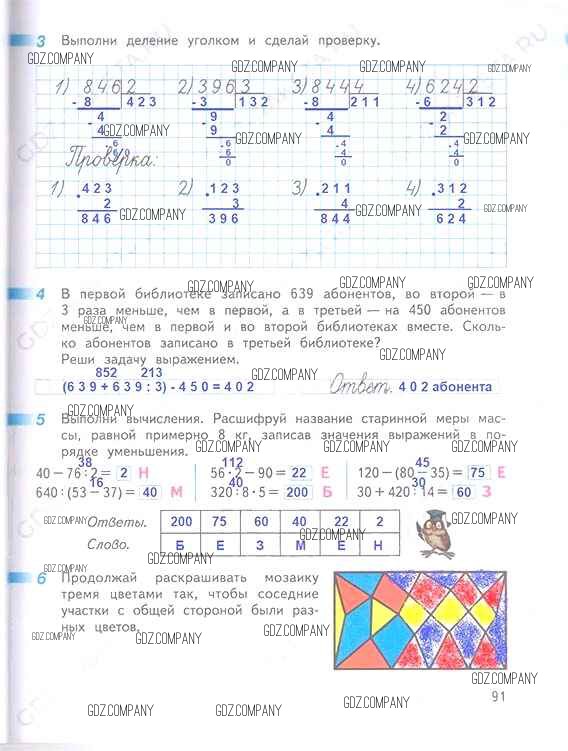 3 Выполни деление уголком и сделай проверку.
GDZ.COMPANY GDZ.COMPANY GDZ.COMPANY GDZ.COMPANY
1) 846 2 2) 396 3 3) 844 4 4) 624 2
- 8 423 - 3 132 - 8 211 - 6 312
4 9 4 2
- 4 - 9 - 4 - 2
GDZ.COMPANY GDZ.COMPANY GDZ.COMPANY
- 6 - 6 - 4 - 4
6 6 4 4
0 0 0 0
Проверка:
1) 423 2) 123 3) 211 4) 312
2 3 4 2
846 396 844 624
GDZ.COMPANY GDZ.COMPANY GDZ.COMPANY
GDZ.COMPANY GDZ.COMPANY GDZ.COMPANY
4 В первой библиотеке записано 639 абонентов, во второй — в
3 раза меньше, чем в первой, а в третьей — на 450 абонентов
GDZ.COMPANY
меньше, чем в первой и во второй библиотеках вместе. Сколь-
ко абонентов записано в третьей библиотеке?
GDZ.COMPANY
Реши задачу выражением.
852 213 GDZ.COMPANY
(639 + 639 : 3) - 450 = 402 Ответ. 402 абонента
GDZ.COMPANY
5 Выполни вычисления. Расшифруй название старинной меры мас-
сы, равной примерно 8 кг, записав значения выражений в по-
GDZ.COMPANY GDZ.COMPANY GDZ.COMPANY GDZ.COMPANY
рядке уменьшения.
38 112 45
40 − 76 : 2 = 2 Н 56 · 2 − 90 = 22 Е 120 − (80 − 35) = 75 Е
16 40 30
640 : (53 − 37) = 40 М 320 : 8 · 5 = 200 Б 30 + 420 : 14 = 60 З
GDZ.COMPANY Ответы. 200 75 60 40 22 2 GDZ.COMPANY
GDZ.COMPANY
Слово. Б Е З М Е Н
GDZ.COMPANY
6 Продолжай раскрашивать мозаику
тремя цветами так, чтобы соседние
участки с общей стороной были раз-
ных цветов.
GDZ.COMPANY GDZ.COMPANY GDZ.COMPANY
GDZ.COMPANY
91
GDZ.COMPANY GDZ.COMPANY GDZ.COMPANY